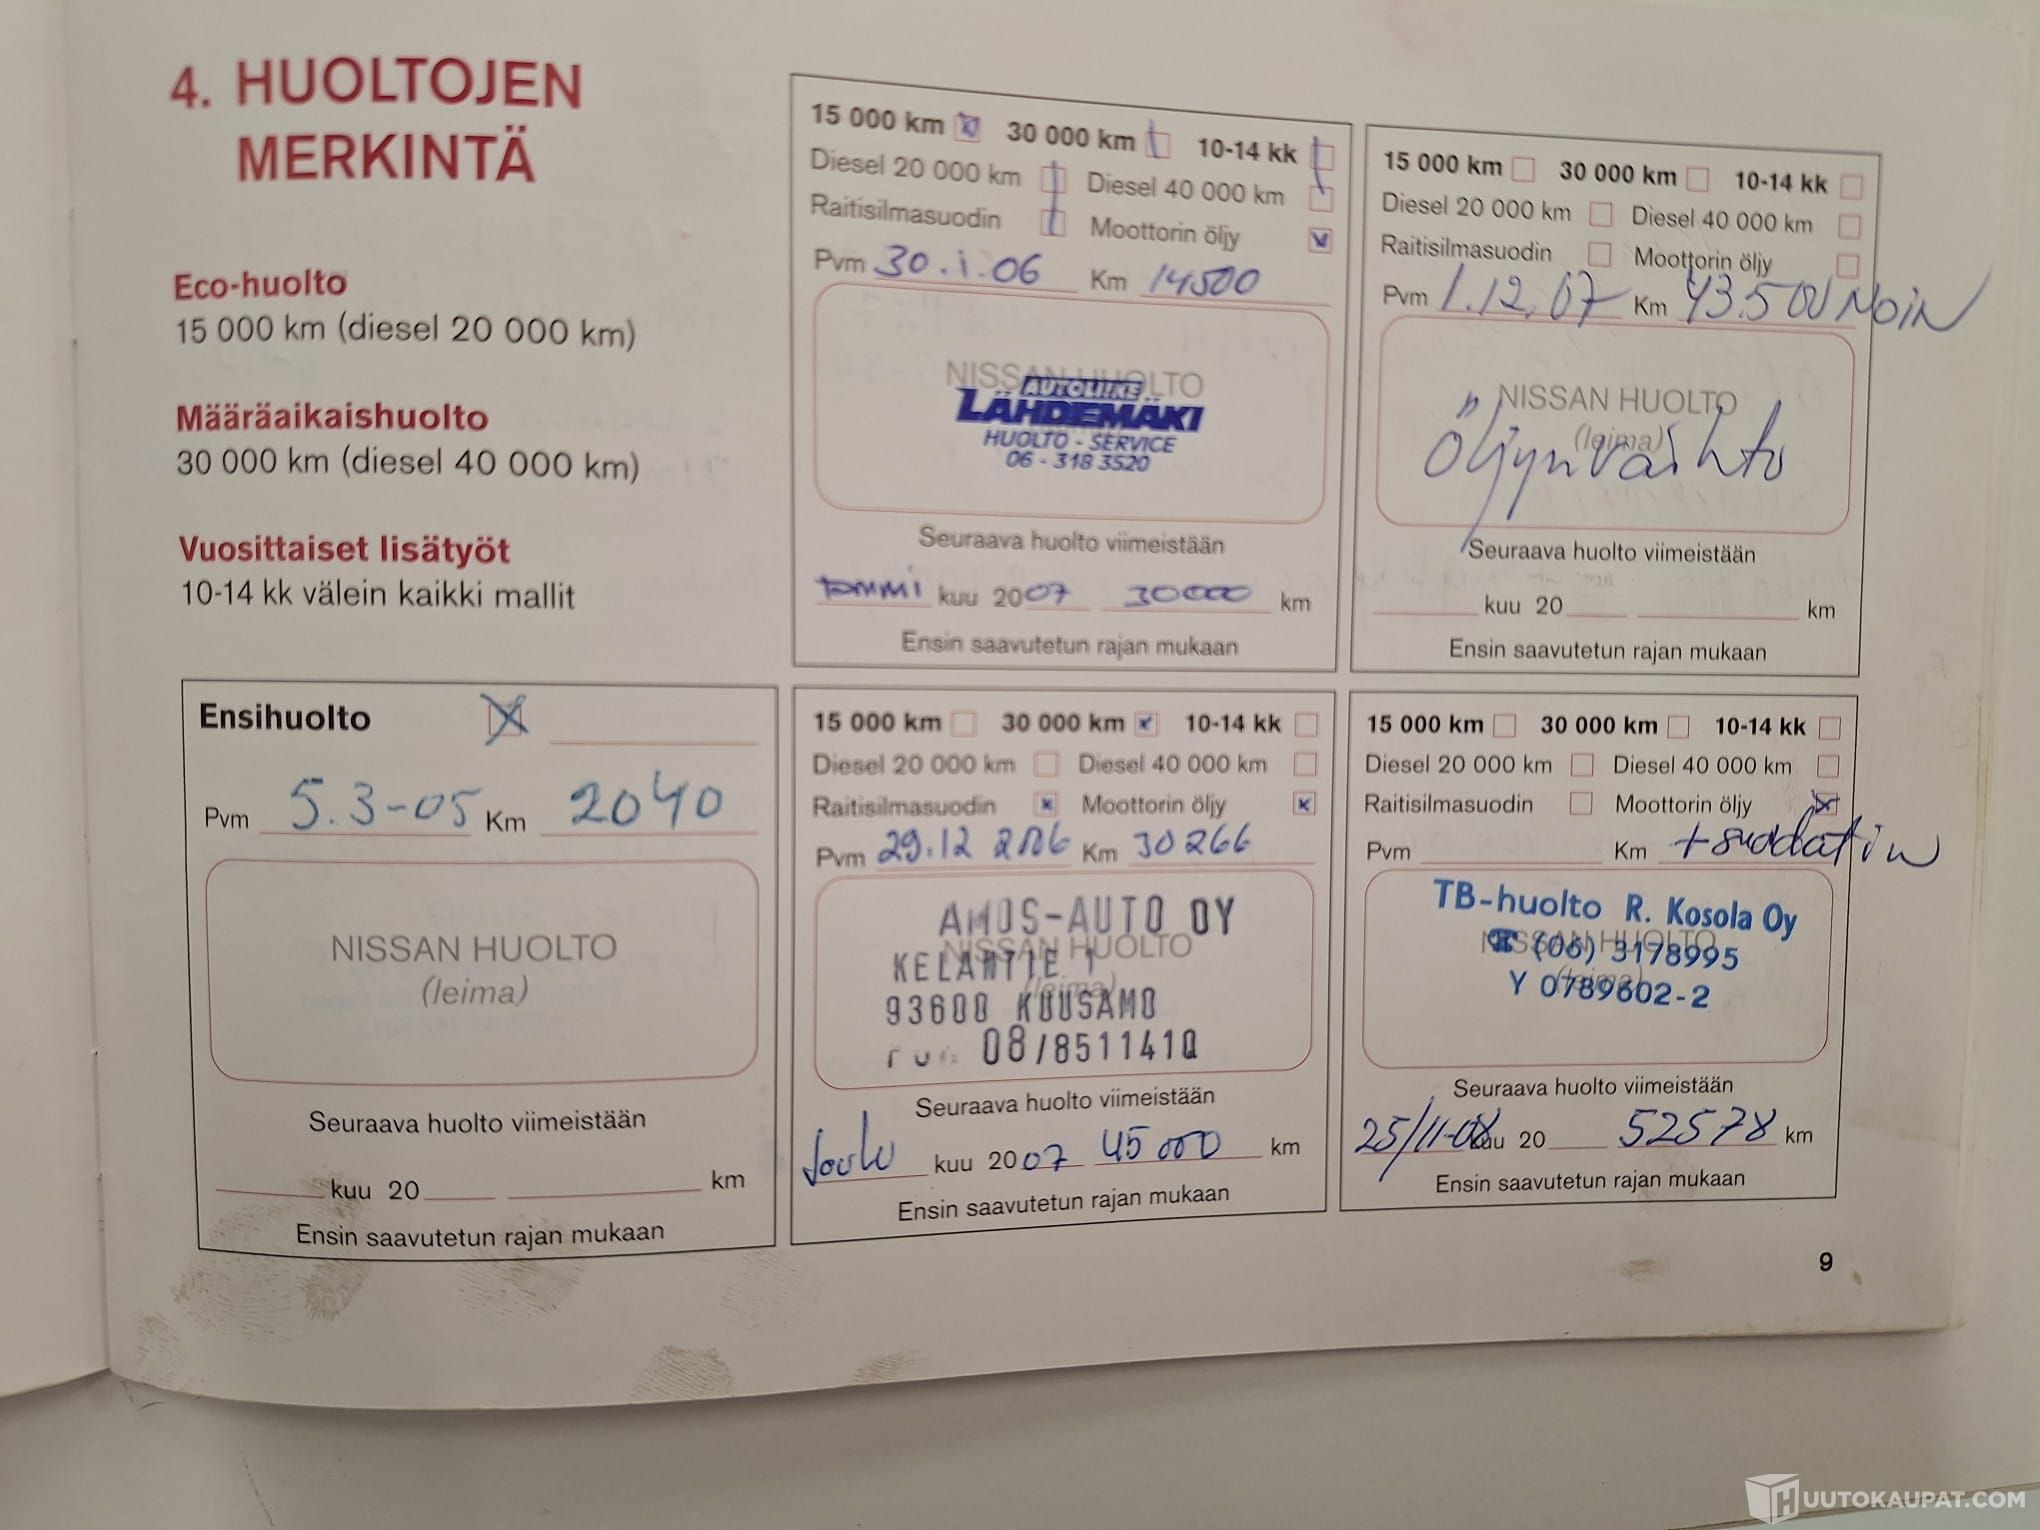 4. HUOLTOJEN
MERKINTÄ
Eco-huolto
15 000 km (diesel 20 000 km)
Määräaikaishuolto
30 000 km (diesel 40 000 km)
Vuosittaiset lisätyöt
10-14 kk välein kaikki mallit
15 000 km 30 000 km 10-14 kk
Diesel 20 000 km Diesel 40 000 km
Raitisilmasuodin Moottorin öljy
Pvm 30.1.06 Km 14500
NISSAN HUOLTO
AUTOLIIKE
LÄHDEMÄKI
HUOLTO - SERVICE
06 - 318 3520
Seuraava huolto viimeistään
tammi kuu 2007 30000 km
Ensin saavutetun rajan mukaan
15 000 km 30 000 km 10-14 kk
Diesel 20 000 km Diesel 40 000 km
Raitisilmasuodin Moottorin öljy
Pvm 1.12.07 Km 43.500 NOIN
NISSAN HUOLTO
(leima)
Öljynvaihto
Seuraava huolto viimeistään
kuu 20 km
Ensin saavutetun rajan mukaan
Ensihuolto
Pvm 5.3-05 Km 2040
NISSAN HUOLTO
(leima)
Seuraava huolto viimeistään
kuu 20 km
Ensin saavutetun rajan mukaan
15 000 km 30 000 km 10-14 kk
Diesel 20 000 km Diesel 40 000 km
Raitisilmasuodin Moottorin öljy
Pvm 29.12 2006 Km 30266
NISSAN HUOLTO
(leima)
AMOS-AUTO OY
KELANTIE 1
93600 KUUSAMO
08/8511410
Seuraava huolto viimeistään
Joulu kuu 2007 45000 km
Ensin saavutetun rajan mukaan
15 000 km 30 000 km 10-14 kk
Diesel 20 000 km Diesel 40 000 km
Raitisilmasuodin Moottorin öljy
Pvm Km + suodatin
NISSAN HUOLTO
(leima)
TB-huolto R. Kosola Oy
☎ (06) 3178995
Y 0789602-2
Seuraava huolto viimeistään
25/11-08 kuu 20 52578 km
Ensin saavutetun rajan mukaan
9
HUUTOKAUPAT.COM